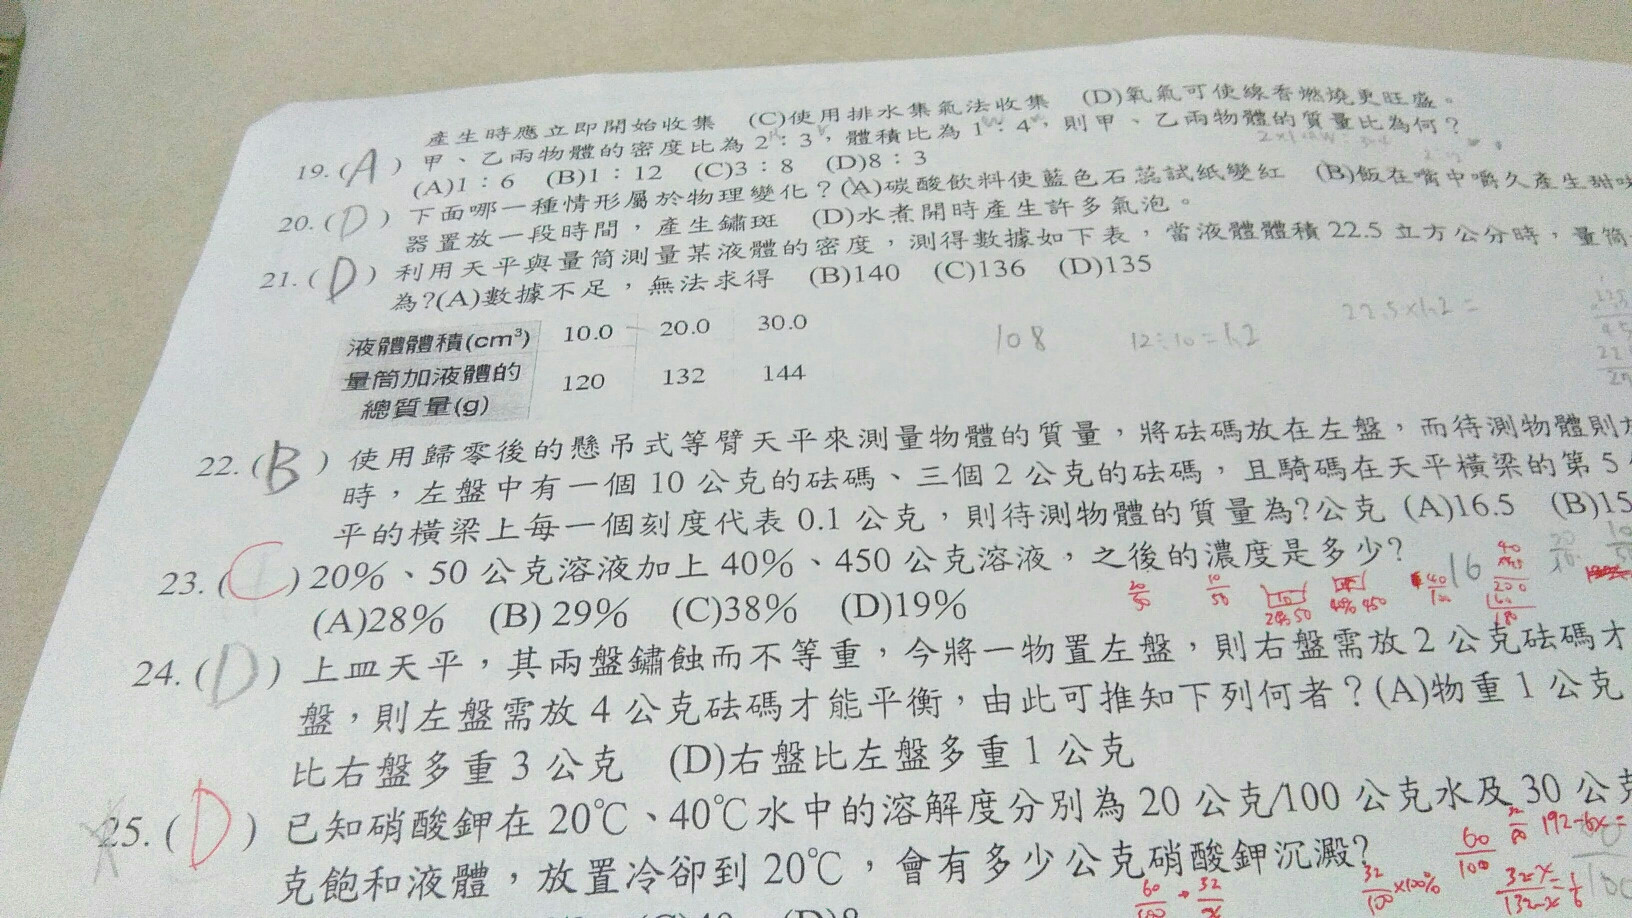 產生時應立即開始收集 (C)使用排水集氣法收集 (D)氧氣可使線香燃燒更旺盛。
19.(A) 甲、乙兩物體的密度比為2：3，體積比為1：4，則甲、乙兩物體的質量比為何？
(A)1：6 (B)1：12 (C)3：8 (D)8：3
20.(D) 下面哪一種情形屬於物理變化？(A)碳酸飲料使藍色石蕊試紙變紅 (B)飯在嘴中嚼久產生甜味
器置放一段時間，產生鏽斑 (D)水煮開時產生許多氣泡。
21.(D) 利用天平與量筒測量某液體的密度，測得數據如下表，當液體體積22.5立方公分時，量筒
為?(A)數據不足，無法求得 (B)140 (C)136 (D)135
液體體積(cm³) 10.0 20.0 30.0
量筒加液體的總質量(g) 120 132 144
108 12÷10=1.2 22.5×1.2=
22.(B) 使用歸零後的懸吊式等臂天平來測量物體的質量，將砝碼放在左盤，而待測物體則
時，左盤中有一個10公克的砝碼、三個2公克的砝碼，且騎碼在天平橫梁的第5
平的橫梁上每一個刻度代表0.1公克，則待測物體的質量為?公克 (A)16.5 (B)15
16
23.(C) 20%、50公克溶液加上40%、450公克溶液，之後的濃度是多少?
(A)28% (B) 29% (C)38% (D)19%
10/50 20% 50 40% 450 40/100
24.(D) 上皿天平，其兩盤鏽蝕而不等重，今將一物置左盤，則右盤需放2公克砝碼才
盤，則左盤需放4公克砝碼才能平衡，由此可推知下列何者？(A)物重1公克
比右盤多重3公克 (D)右盤比左盤多重1公克
25.(D) 已知硝酸鉀在20℃、40℃水中的溶解度分別為20公克/100公克水及30公克
192-6x=
克飽和液體，放置冷卻到20℃，會有多少公克硝酸鉀沉澱?
60/100 32/x 32/100×100% 60/100 32-x/132-x=1/6